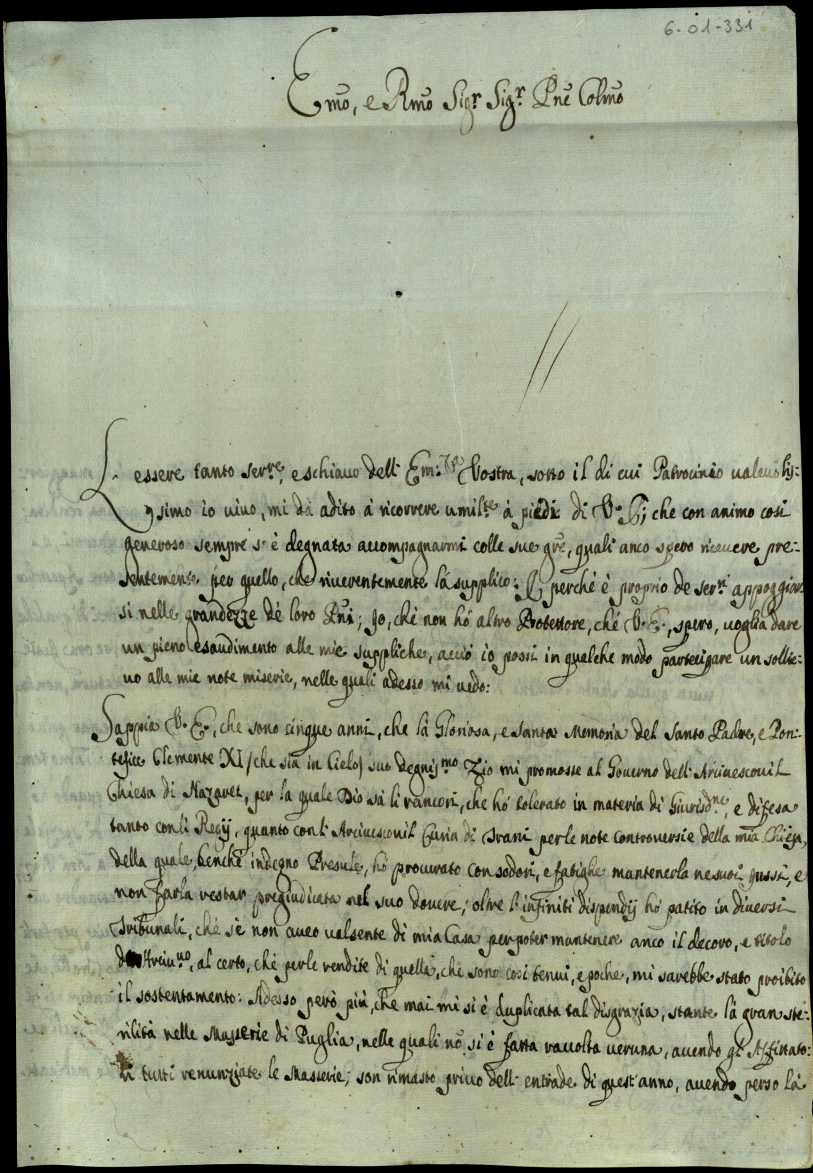 6-01-331
Emo, e Rmo Sigr Sigr Pne Colmo
L'essere tanto serre, e schiavo dell' Em.za Vostra, sotto il di cui Patrocinio valevolis-
simo io vivo, mi dà adito à ricorrere umilte à piedi di V. E., che con animo così
generoso sempre s'è degnata accompagnarmi colle sue gre, quali anco spero ricevere pre-
sentemente per quello, che riverentemente la supplico: E perche è proprio de serri appoggiar-
si nelle grandezze dè loro Pni; Io, che non hò altro Protettore, chè V. E., spero, voglia dare
un pieno esaudimento alle mie suppliche, acciò io possi in qualche modo partecipare un sollie-
vo alle mie note miserie, nelle quali adesso mi vedo:
Sappia V. E., che sono cinque anni, che la Gloriosa, e Santa Memoria del Santo Padre, e Pon-
tefice Clemente XI / che sia in Cielo / suo degnismo Zio mi promosse al Governo dell' Arcivescovil
Chiesa di Nazaret, per la quale Dio sà li rancori, che hò tolerato in materia di Giurisdne, e difesa
tanto con li Regij, quanto con li Arcivescovil Curia di Trani per le note controversie della mia Chiesa,
della quale, benche indegno Presule, hò procurato con sodori, e fatighe mantenerla ne suoi jussi, e
non farla restar pregiudicata nel suo dovere; oltre l'infiniti dispendij hò patito in diversi
Tribunali, chè se non aveo valsente di mia Casa per poter mantenere anco il decoro, e titolo
d'Arcivvo, al certo, che per le rendite di quella, che sono così tenui, e poche, mi sarebbe stato proibito
il sostentamento: Adesso però più, che mai mi si è duplicata tal disgrazia, stante la gran ste-
rilità nelle Masserie di Puglia, nelle quali nò si è fatta raccolta veruna, avendo gl' Affittato-
ri tutti renunziate le Masserie; son rimasto privo dell' entrade di quest' anno, avendo perso la